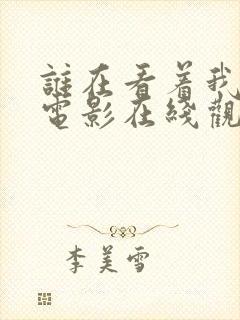 誰在看着我
電影在綫觀
李美雪